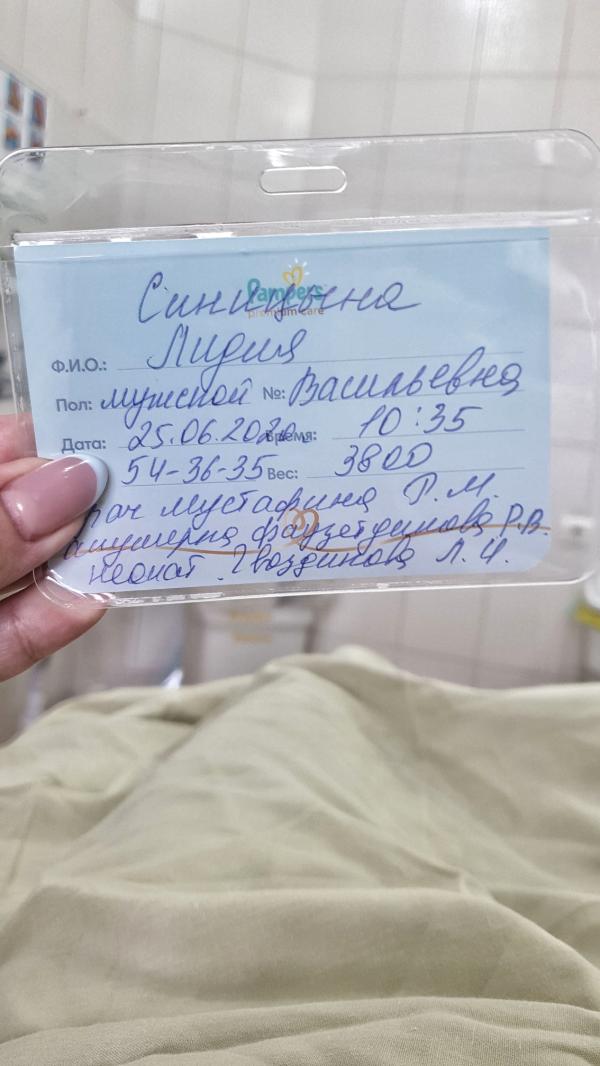 Pampers
premium care
Синицына
Ф.И.О.: Лидия
Пол: мужской №: Васильевна
Дата: 25.06.202 Время: 10:35
54-36-35 Вес: 3800
рач Мустафина Р.М.
акушерка Фаузетдинова Р.В.
неонат. Гвоздикова Л.И.